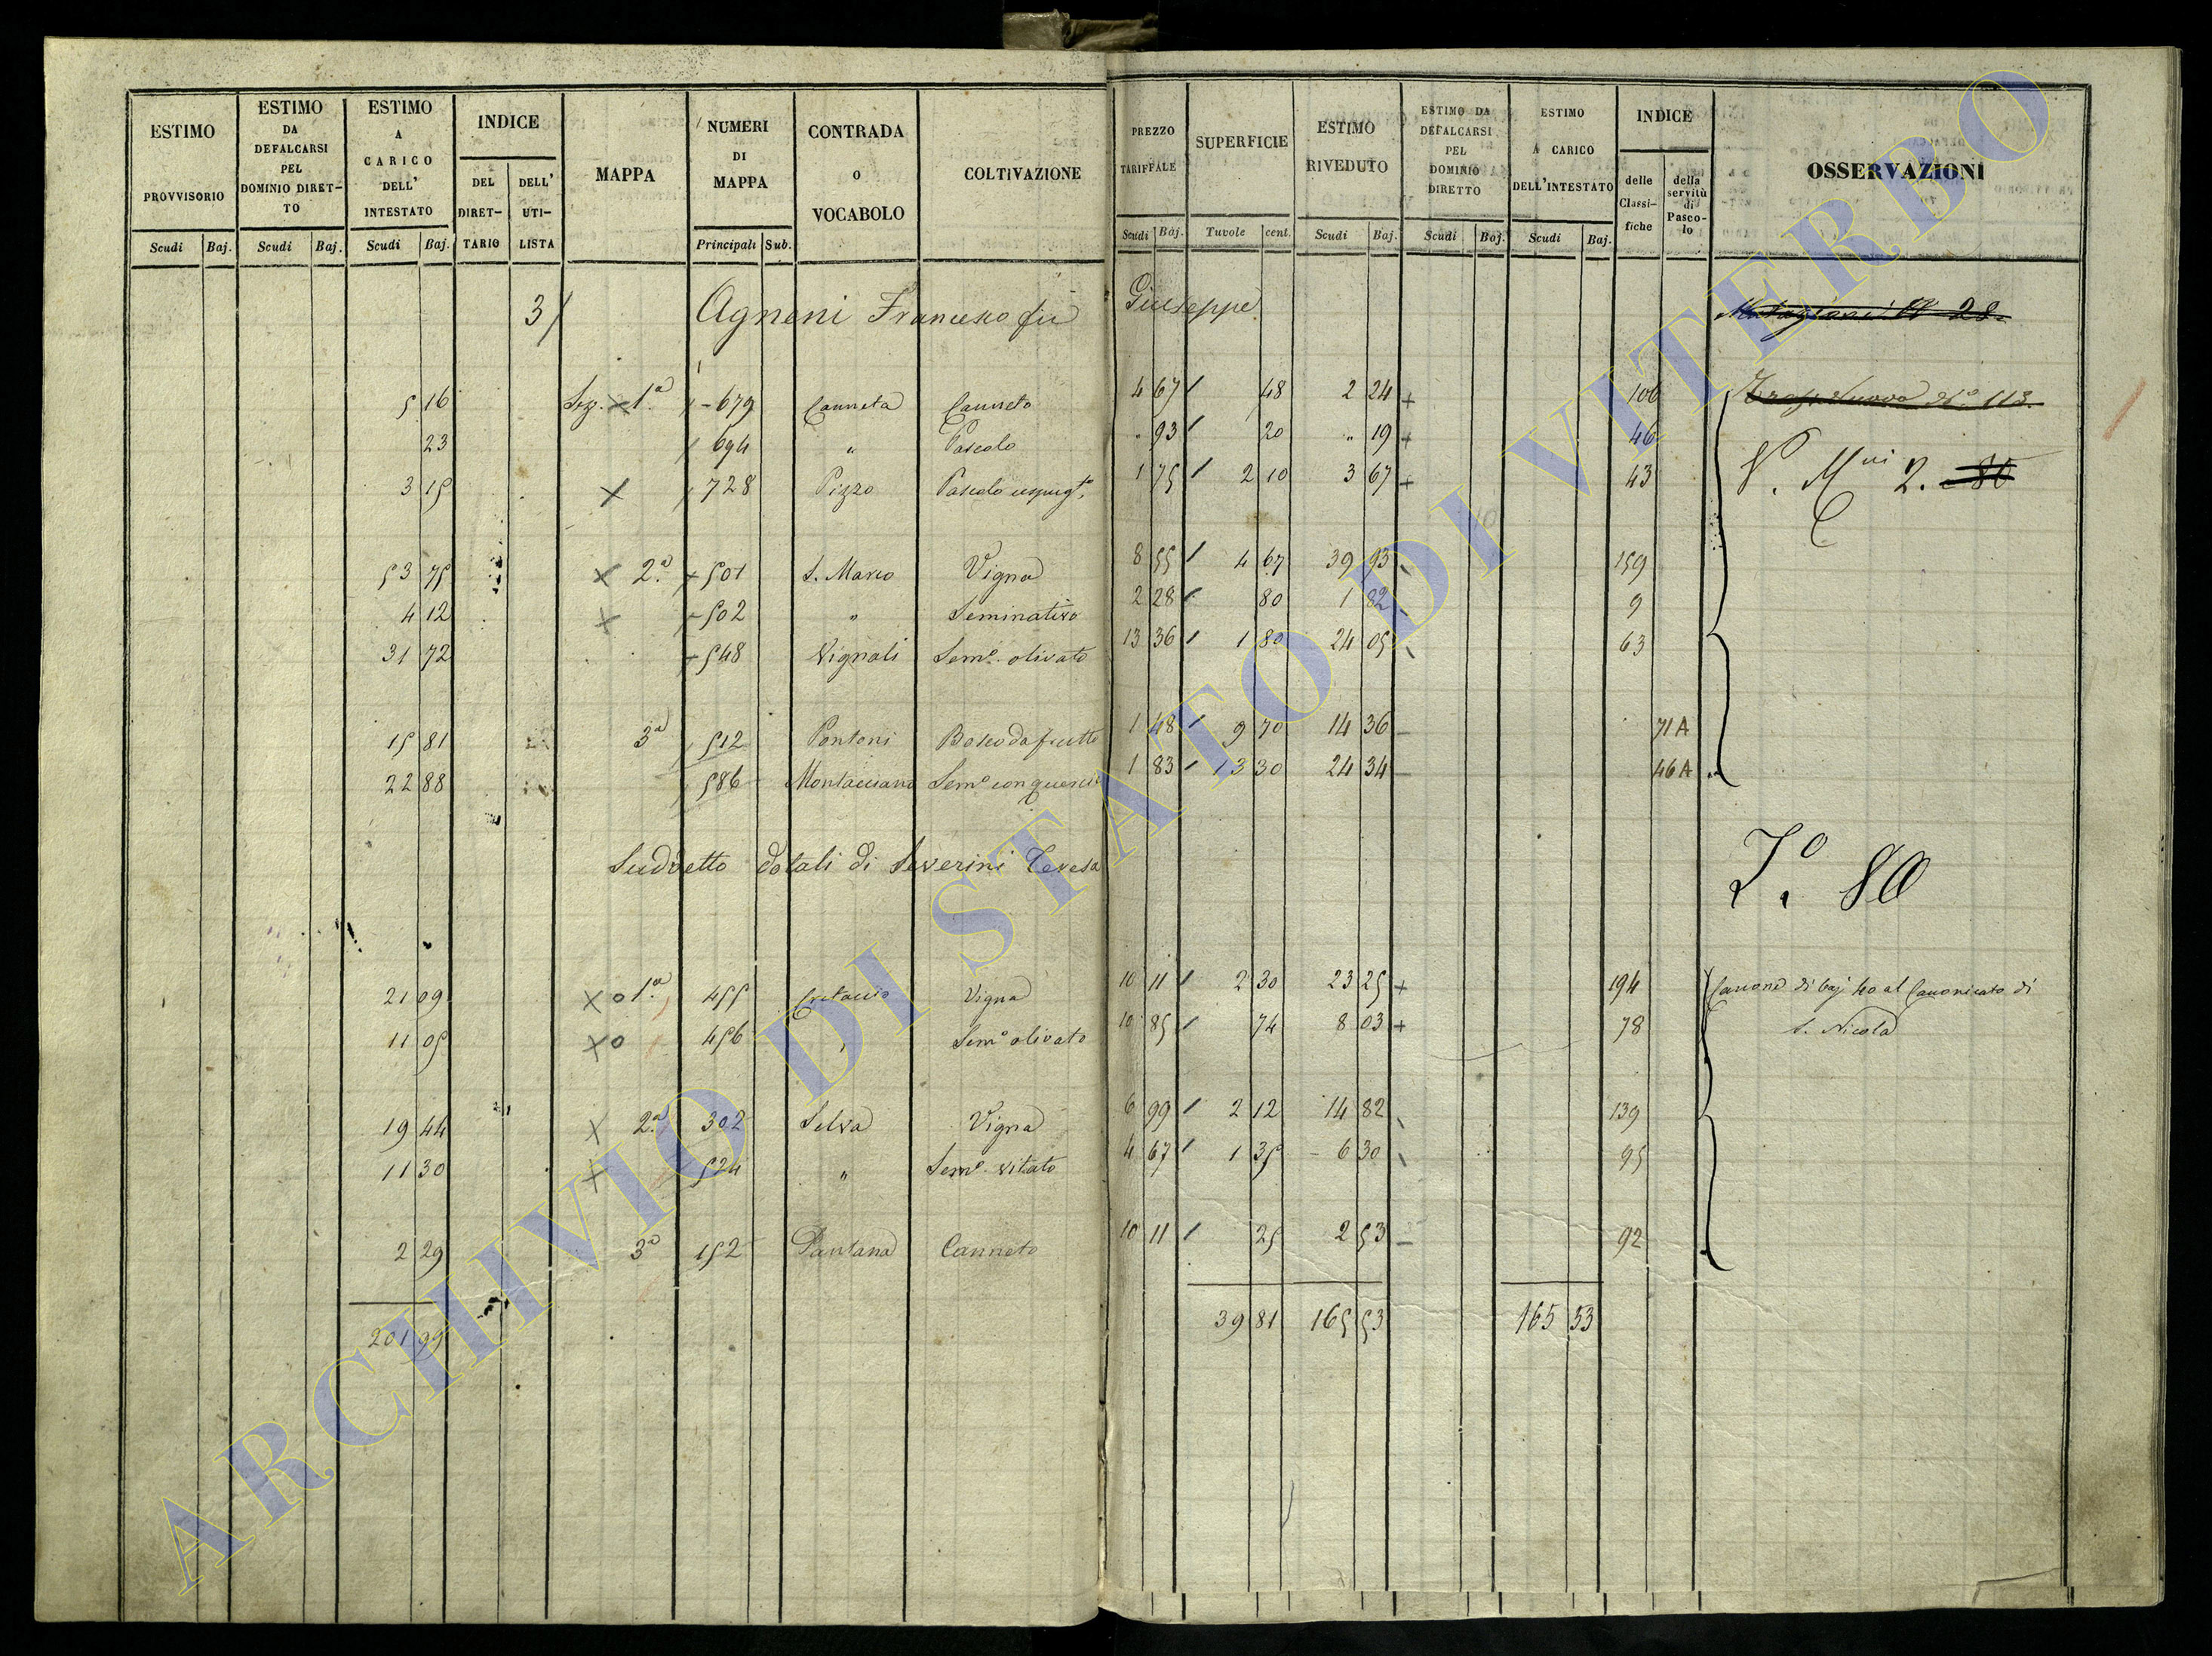 ESTIMO PROVVISORIO Scudi Baj.
ESTIMO DA DEFALCARSI PEL DOMINIO DIRET- TO Scudi Baj.
ESTIMO A CARICO DELL' INTESTATO Scudi Baj.
INDICE DEL DIRET- TARIO DELL' UTI- LISTA
MAPPA
NUMERI DI MAPPA Principali Sub.
CONTRADA O VOCABOLO
COLTIVAZIONE
PREZZO TARIFFALE Scudi Baj.
SUPERFICIE Tavole cent.
ESTIMO RIVEDUTO Scudi Baj.
ESTIMO DA DEFALCARSI PEL DOMINIO DIRETTO Scudi Baj.
ESTIMO A CARICO DELL'INTESTATO Scudi Baj.
INDICE delle Classi- fiche della servitù di Pasco- lo
OSSERVAZIONI
3/ Agneni Francesco fu Giuseppe 28
5 16 Sez. 1.a 679 Canneta Canneto 4 67 48 2 24 + 106 113
23 694 " Pascolo " 93 20 " 19 + 46
3 15 728 Pizzo Pascolo 1 75 2 10 3 67 + 43 2. 80
53 75 2.a 501 S. Marco Vigna 8 55 4 67 39 93 159
4 12 502 " Seminativo 2 28 80 1 82 9
31 72 548 Vignali Sem.o olivato 13 36 1 80 24 05 63
15 81 3a 512 Pontoni Bosco da frutto 1 48 9 70 14 36 71 A
22 88 586 Sem.o con querci 1 83 13 30 24 34 46 A
Sudetto dotali di Severini Teresa
80
21 09 1.a 455 Cretaccio Vigna 10 11 2 30 23 25 + 194 Canone di baj 40 al Canonicato di
11 05 456 " Sem.o olivato 10 85 74 8 03 + 78 S. Nicola
19 44 2.a 302 Selva Vigna 6 99 2 12 14 82 139
11 30 524 " Sem.o vitato 4 67 1 35 6 30 95
2 29 3a 152 Pantana Canneto 10 11 25 2 53 92
201 99 39 81 165 53 165 53
ARCHIVIO DI STATO DI VITERBO